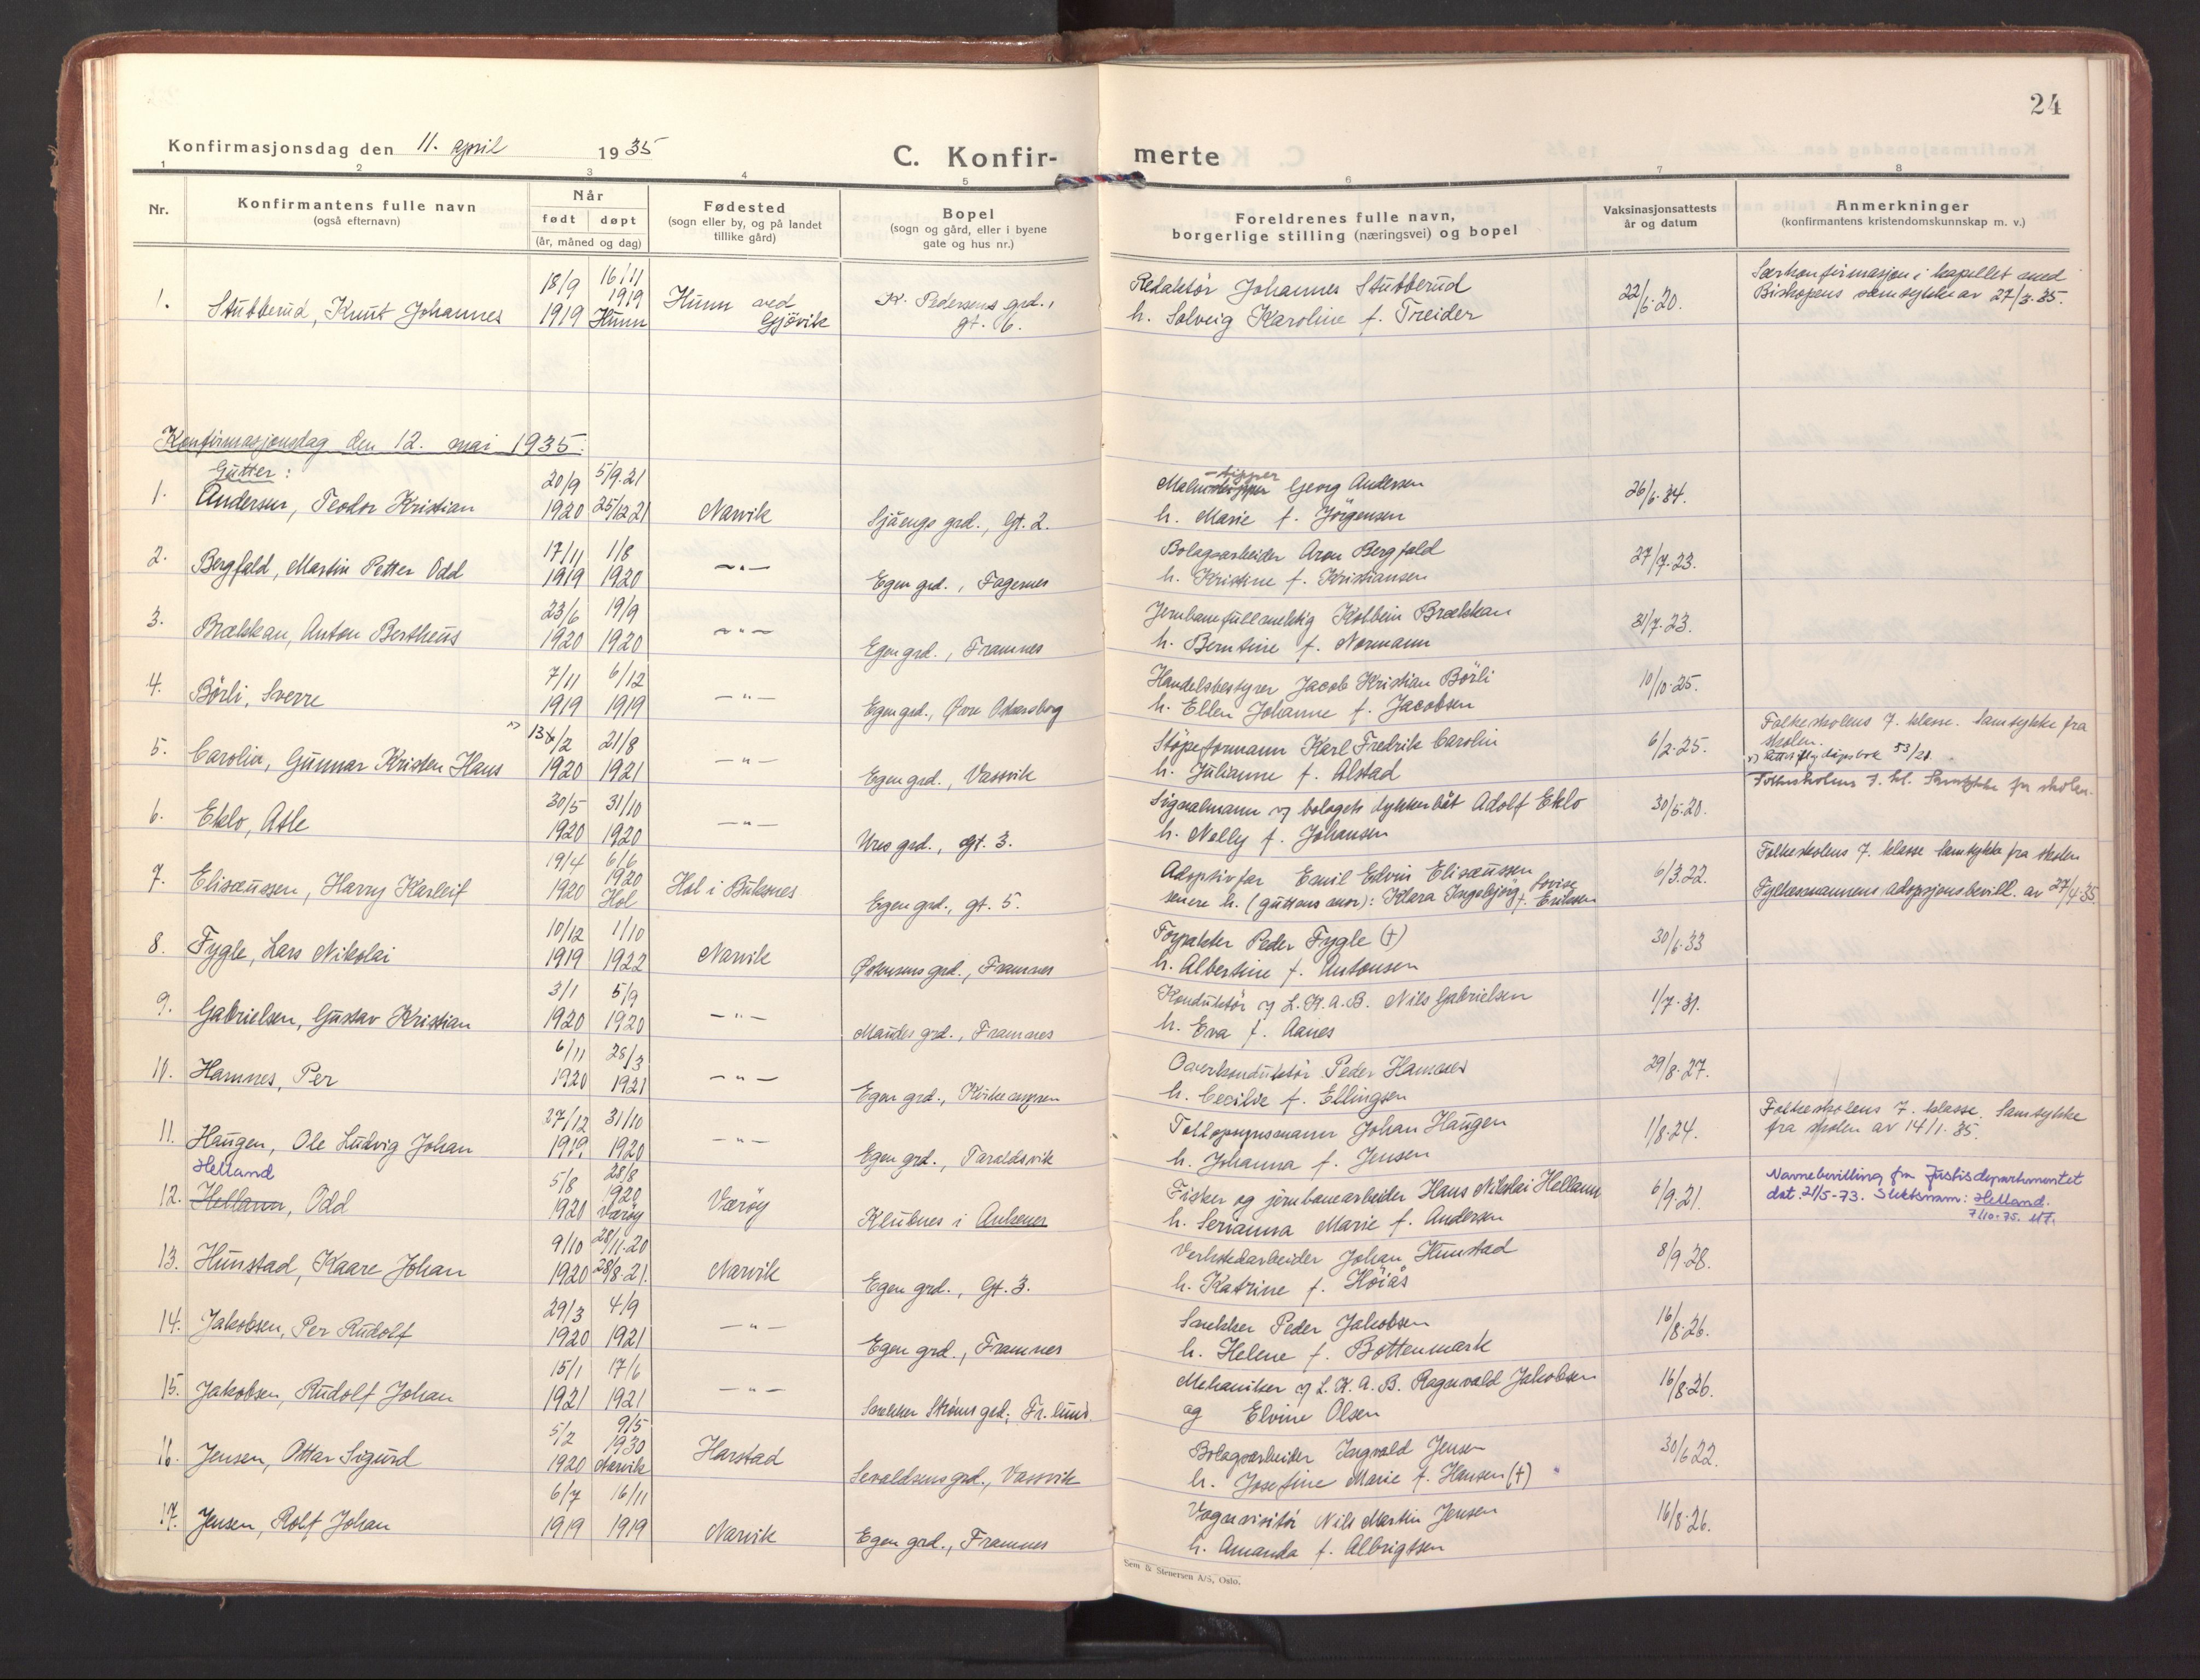 24
Konfirmasjonsdag den 11. april 1935
C. Konfir- merte
1 2 3 4 5 6 7 8
Nr.
Konfirmantens fulle navn
(også efternavn)
Når
født døpt
(år, måned og dag)
Fødested
(sogn eller by, og på landet
tillike gård)
Bopel
(sogn og gård, eller i byene
gate og hus nr.)
Foreldrenes fulle navn,
borgerlige stilling (næringsvei) og bopel
Vaksinasjonsattests
år og datum
Anmerkninger
(konfirmantens kristendomskunnskap m. v.)
1. Stubberud, Knut Johannes 18/9 1919 16/11 1919 Hunn Hunn ved Gjövik K. Pedersens grd., gt. 6.
Redaktör Johannes Stubberud
h. Solveig Karoline f. Treider
22/6-20.
Særkonfirmasjon i kapellet med
Biskopens samtykke av 27/3-35.
Konfirmasjonsdag den 12. mai 1935.
Gutter:
1. Andersen, Teodor Kristian 20/9 1920 5/9.21 25/12 21 Narvik Sjåengs grd., Gt. 2.
Malm-tipper Georg Andersen
h. Marie f. Jörgensen
26/6-34.
2. Bergfald, Martin Petter Odd 17/11 1919 1/8 1920 -"- Egen grd., Fagernes
Bolagsarbeider Aron Bergfald
h. Kristine f. Kristiansen
27/7-23.
3. Brækkan, Anton Bertheus 23/6 1920 19/9 1920 -"- Egen grd., Framnes
Jernbanefullmektig Kolbein Brækkan
h. Berntine f. Normann
31/7-23.
4. Börli, Sverre 7/11 1919 6/12 1919 -"- Egen grd., Øvre Oskarsborg
Handelsbestyrer Jacob Kristian Börli
h. Ellen Johanne f. Jacobsen
10/10-25.
5. Carolin, Gunnar Kristen Hans x) 13/2 1920 21/8 1921 -"- Egen grd., Vassvik
Stöpeformann Karl Fredrik Carolin
h. Julianne f. Alstad
6/2-25.
Folkeskolens 7. klasse. Samtykke fra
skolen.
x) Rettet flg. dåpsbok 53/21
6. Eklo, Atle 30/5 1920 31/10 1920 -"- Ures grd., gt. 3.
Signalmann v/ bolagets dykkerbåt Adolf Eklo
h. Nelly f. Johansen
30/6-20.
Folkeskolens 7. kl. Samtykke fra skolen.
7. Elisæussen, Harry Karleif 19/4 1920 6/6 1920 Hol Hol i Buksnes Egen grd., gt. 5.
Adoptivfar Emil Edvin Elisæussen
senere h. (guttens mor): Klara Ingebjörg f. Eriksen
6/3.22.
Folkeskolens 7. klasse Samtykke fra skolen
Fylkesmannens adopsjonsbevill. av 27/4-35.
8. Fygle, Lars Nikolai 10/12 1919 1/10 1922 Narvik Oskarsens grd., Framnes
Forpakter Peder Fygle (†)
h. Albertine f. Antonsen
30/6-33
9. Gabrielsen, Gustav Kristian 3/1 1920 5/9 1920 -"- Maudes grd., Framnes
Konduktör v/ L.K.A.B. Nils Gabrielsen
h. Eva f. Aanes
1/7-31.
10. Hamnes, Per 6/11 1920 28/3 1921 -"- Egen grd., Kvikemyren
Overkonduktör Peder Hamnes
h. Cecilie f. Ellingsen
29/8-27.
11. Haugen, Ole Ludvig Johan 27/12 1919. 31/10 1920 -"- Egen grd., Taraldsvik
Tollopsynsmann Johan Haugen
h. Johanna f. Jensen
1/8-24.
Folkeskolens 7. klasse. Samtykke
fra skolen av 14/1-35.
Helland
12. Hellann, Odd 5/8 1920 28/8 1920 Værøy Værøy Klubnes i Ankenes
Fisker og jernbanearbeider Hans Nikolai Hellann
h. Serianna Marie f. Andersen
6/9-21.
Navnebevilling fra Justisdepartementet
dat. 21/5-73. Slektsnavn: Helland.
7/10-75. UT.
13. Hunstad, Kaare Johan 9/10 1920 28/11-20 28/8-21. Narvik Egen grd., Gt. 3.
Verkstedarbeider Johan Hunstad
h. Katrine f. Höiås
8/9-28.
14. Jakobsen, Per Rudolf 29/3 1920 4/9 1921 -"- Egen grd., Framnes
Snekker Peder Jakobsen
h. Helene f. Bottenmark
16/8-26.
15. Jakobsen, Rudolf Johan 15/1 1921 17/6 1921 -"- Snekker Ströms grd., Fr.lund.
Mekaniker v/ L.K.A.B. Ragnvald Jakobsen
og Elvine Olsen
16/8-26.
16. Jensen, Ottar Sigurd 5/2 1920 9/5 1930 Narvik Harstad Sevaldsens grd., Vassvik
Bolagsarbeider Ingvald Jensen
h. Josefine Marie f. Hansen (†)
30/6 22.
17. Jensen, Rolf Johan 6/7 1919 16/11 1919 Narvik Egen grd., Framnes
Vognvisitör Nils Martin Jensen
h. Amanda f. Albrigtsen
16/8-26.
Sem & Stenersen A/S, Oslo.